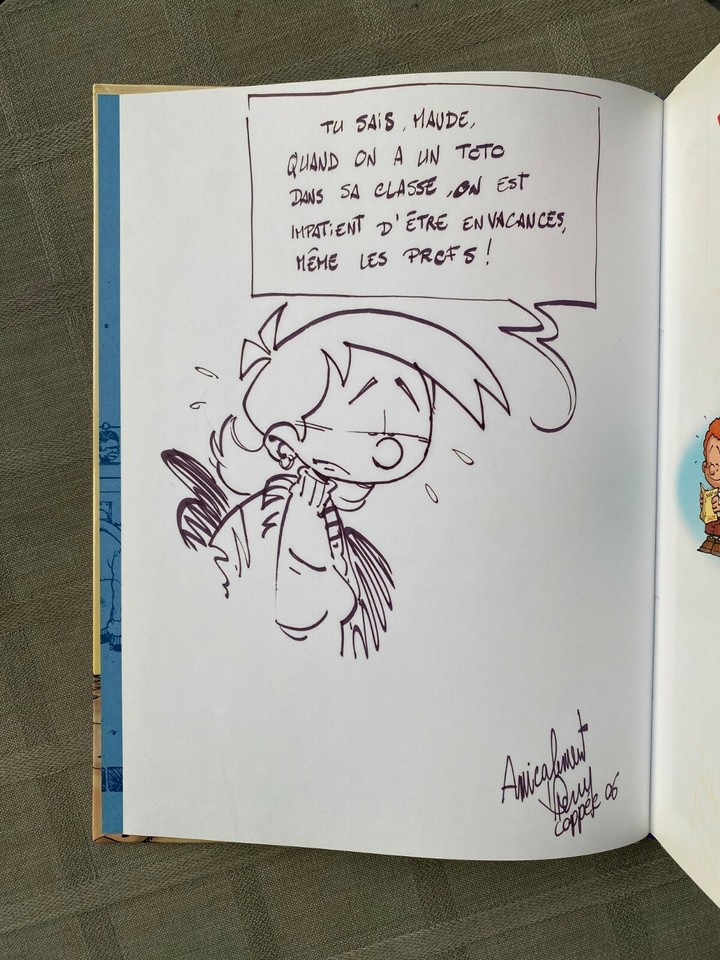 TU SAIS, MAUDE,
QUAND ON A UN TOTO
DANS SA CLASSE, ON EST
IMPATIENT D'ÊTRE EN VACANCES,
MÊME LES PROFS !
Amicalement
Thierry
Coppée 06